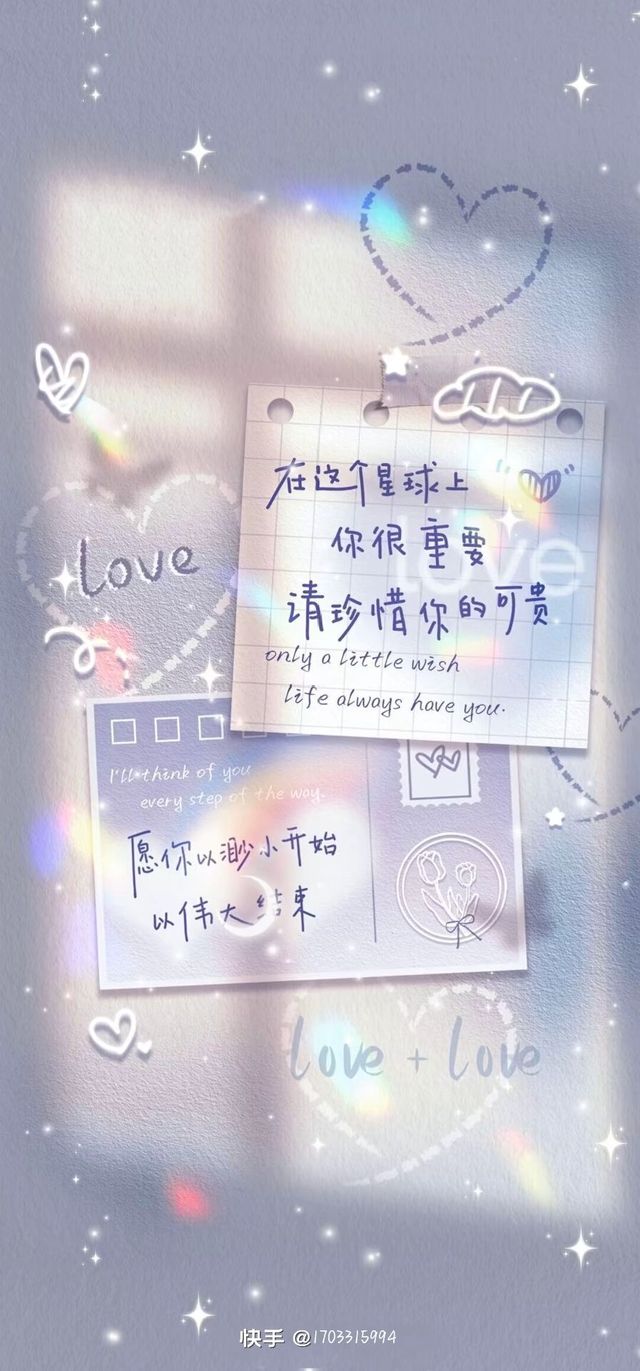 在这个星球上
你很重要
love
请珍惜你的可贵
only a little wish
life always have you.
love
I'll think of you
every step of the way.
愿你以渺小开始
以伟大结束
love + love
快手 @1703315994